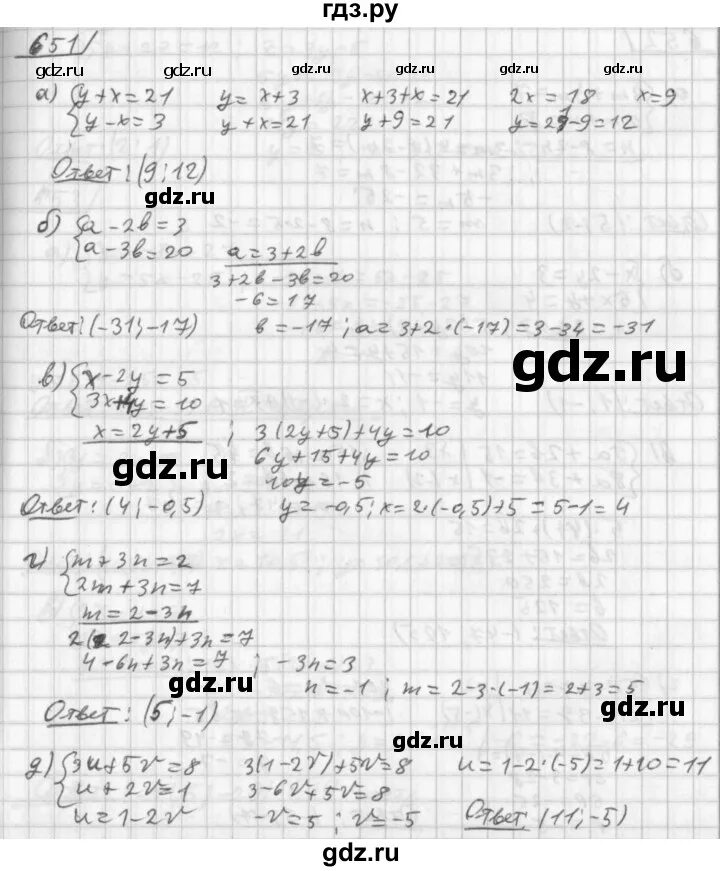 гдз.ру
651/
gdz.ru gdz.ru gdz.ru gdz.ru gdz.ru
а) {y+x=21 y=x+3 x+3+x=21 2x=18 x=9
{y-x=3 y+x=21 y+9=21 y=21-9=12
Ответ: (9;12)
gdz.ru
б) {a-2b=3
{a-3b=20 a=3+2b
3+2b-3b=20
-b=17
Ответ: (-31;-17) b=-17; a=3+2·(-17)=3-34=-31
gdz.ru
в) {x-2y=5
{3x+4y=10
x=2y+5; 3(2y+5)+4y=10
gdz.ru
6y+15+4y=10
10y=-5
Ответ: (4;-0,5) y=-0,5; x=2·(-0,5)+5=5-1=4
г) {m+3n=2
{2m+3n=7
m=2-3n
2(2-3n)+3n=7
4-6n+3n=7; -3n=3
gdz.ru
n=-1; m=2-3·(-1)=2+3=5
gdz.ru
Ответ: (5;-1)
gdz.ru
д) {3u+5v=8 3(1-2v)+5v=8 u=1-2·(-5)=1+10=11
{u+2v=1 3-6v+5v=8
u=1-2v -v=5; v=-5 Ответ: (11;-5)
gdz.ru